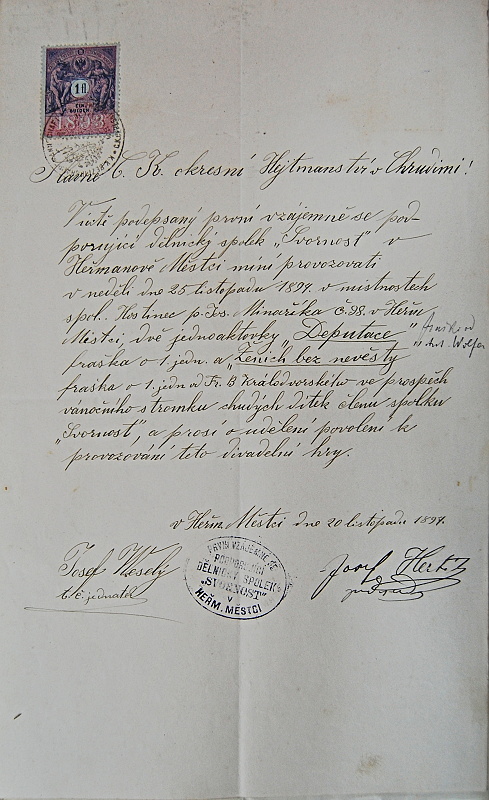 1 fl
EIN GULDEN
1893
Slavné C. K. okresní Hejtmanství v Chrudimi!
Níže podepsaný první vzájemně se pod-
porující dělnický spolek „Svornost" v
Heřmanově Městci míní provozovati
v neděli dne 25 listopadu 1894. v místnostech
spol. Hostinec p. Jos. Minaříka č. 98. v Heřm.
Městci, dvě jednoaktovky „Deputace"
fraška o 1. jedn. a „Ženich bez nevěsty
fraska o 1. jedn od Fr. B Králodvorského ve prospěch
vánočního stromku chudých dítek členů spolku
„Svornost", a prosí o udělení povolení k
provozování této divadelní hry.
v Heřm. Městci dne 20 listopadu 1894.
Josef Veselý
t. č. jednatel
PRVNÍ VZÁJEMNĚ SE
PODPORUJÍCÍ
DĚLNICKÝ SPOLEK
„SVORNOST"
V
HEŘM. MĚSTCI
Josef